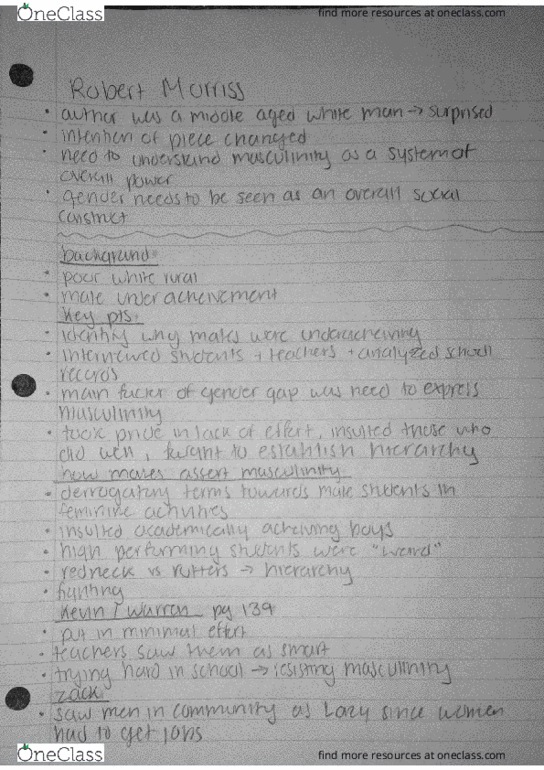 OneClass
find more resources at oneclass.com
Robert Morriss
• author was a middle aged white man → surprised
• intention of piece changed
• need to understand masculinity as a system of
overall power
• gender needs to be seen as an overall social
construct
background:
• poor white rural
• male under acheivement
key pts:
• identify why males were underacheiving
• interviewed students + teachers + analyzed school
records
• main factor of gender gap was need to express
masculinity
• took pride in lack of effort, insulted those who
did well, want to establish hierarchy
how males assert masculinity
• derrogatory terms towards male students in
feminine activities
• insulted academically acheiving boys
• high performing students were "weird"
• redneck vs rutters → hierarchy
• fighting
Kevin / Warren pg 139
• put in minimal effort
• teachers saw them as smart
• trying hard in school → resisting masculinity
zack
• saw men in community as lazy since women
had to get jobs
OneClass
find more resources at oneclass.com